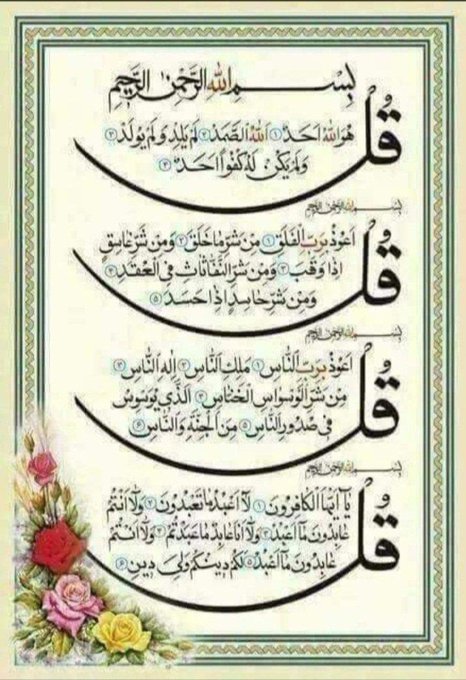 بِسْمِ اللهِ الرَّحْمٰنِ الرَّحِيْمِ
قُلْ هُوَ اللهُ اَحَدٌ ۝١ اَللهُ الصَّمَدُ ۝٢ لَمْ يَلِدْ وَلَمْ يُولَدْ ۝٣
وَلَمْ يَكُنْ لَهُ كُفُوًا اَحَدٌ ۝٤
بِسْمِ اللهِ الرَّحْمٰنِ الرَّحِيْمِ
قُلْ اَعُوْذُ بِرَبِّ الْفَلَقِ ۝١ مِنْ شَرِّ مَا خَلَقَ ۝٢ وَمِنْ شَرِّ غَاسِقٍ
اِذَا وَقَبَ ۝٣ وَمِنْ شَرِّ النَّفَّاثَاتِ فِي الْعُقَدِ ۝٤
وَمِنْ شَرِّ حَاسِدٍ اِذَا حَسَدَ ۝٥
بِسْمِ اللهِ الرَّحْمٰنِ الرَّحِيْمِ
قُلْ اَعُوْذُ بِرَبِّ النَّاسِ ۝١ مَلِكِ النَّاسِ ۝٢ اِلٰهِ النَّاسِ ۝٣
مِنْ شَرِّ الْوَسْوَاسِ الْخَنَّاسِ ۝٤ اَلَّذِي يُوَسْوِسُ
فِي صُدُورِ النَّاسِ ۝٥ مِنَ الْجِنَّةِ وَالنَّاسِ ۝٦
بِسْمِ اللهِ الرَّحْمٰنِ الرَّحِيْمِ
قُلْ يَا اَيُّهَا الْكَافِرُونَ ۝١ لَا اَعْبُدُ مَا تَعْبُدُونَ ۝٢ وَلَا اَنْتُمْ
عَابِدُونَ مَا اَعْبُدُ ۝٣ وَلَا اَنَا عَابِدٌ مَا عَبَدْتُمْ ۝٤ وَلَا اَنْتُمْ
عَابِدُونَ مَا اَعْبُدُ ۝٥ لَكُمْ دِينُكُمْ وَلِيَ دِينِ ۝٦